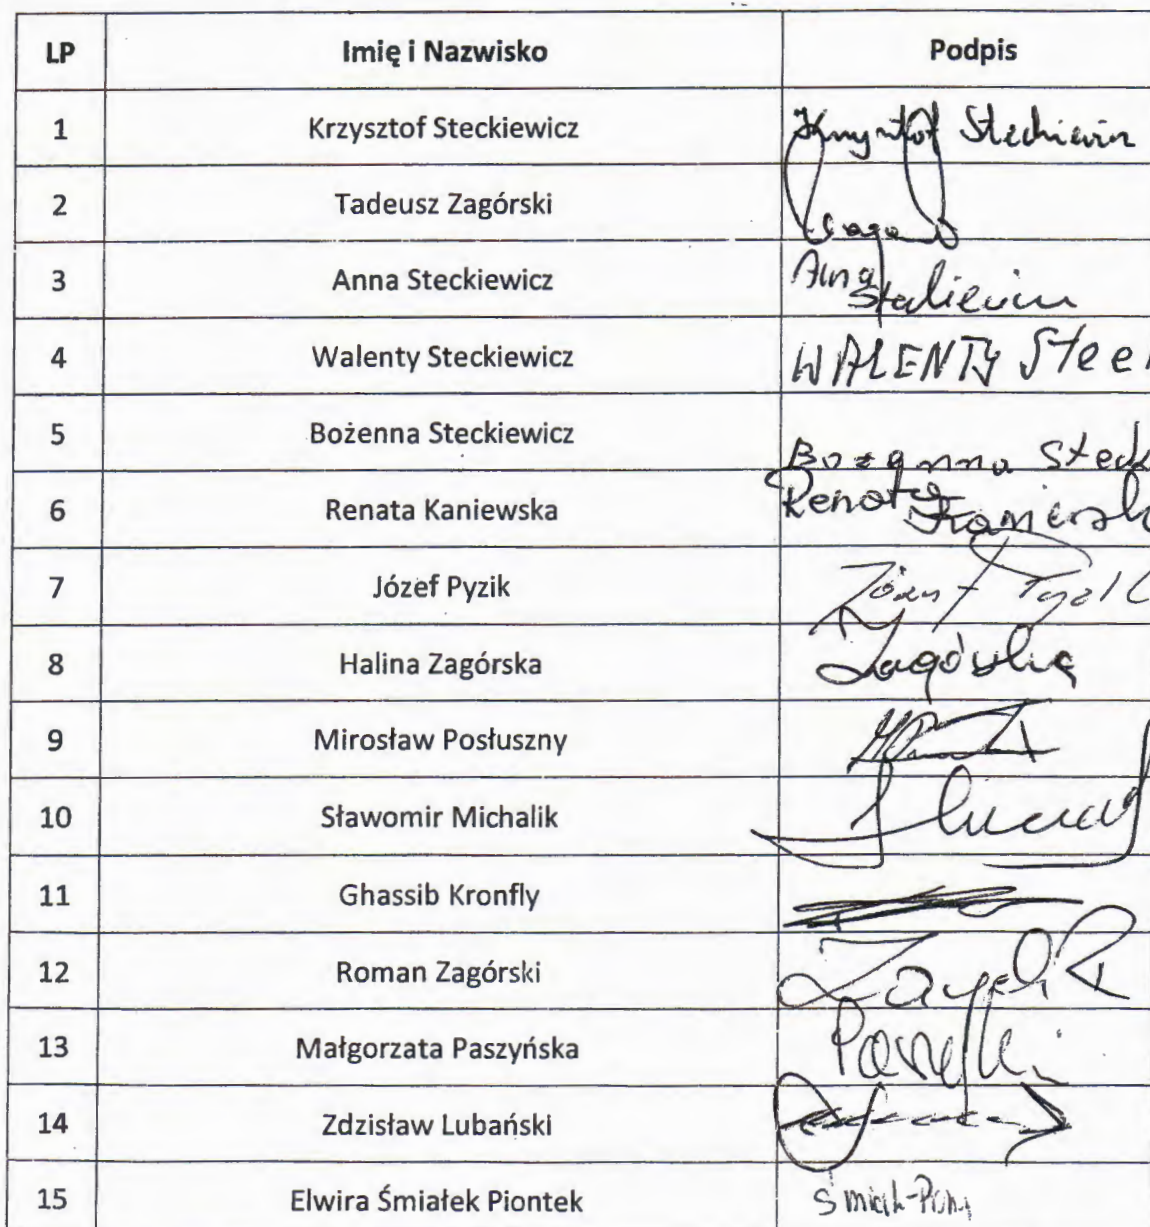 LP Imię i Nazwisko Podpis
1 Krzysztof Steckiewicz Krzysztof Steckiewicz
2 Tadeusz Zagórski
3 Anna Steckiewicz Anna Steckiewicz
4 Walenty Steckiewicz WALENTY Steck
5 Bożenna Steckiewicz Bożenna Steck
6 Renata Kaniewska Renata Kaniewsk
7 Józef Pyzik Józef Pyzik
8 Halina Zagórska Zagórska
9 Mirosław Posłuszny
10 Sławomir Michalik
11 Ghassib Kronfly
12 Roman Zagórski
13 Małgorzata Paszyńska
14 Zdzisław Lubański
15 Elwira Śmiałek Piontek